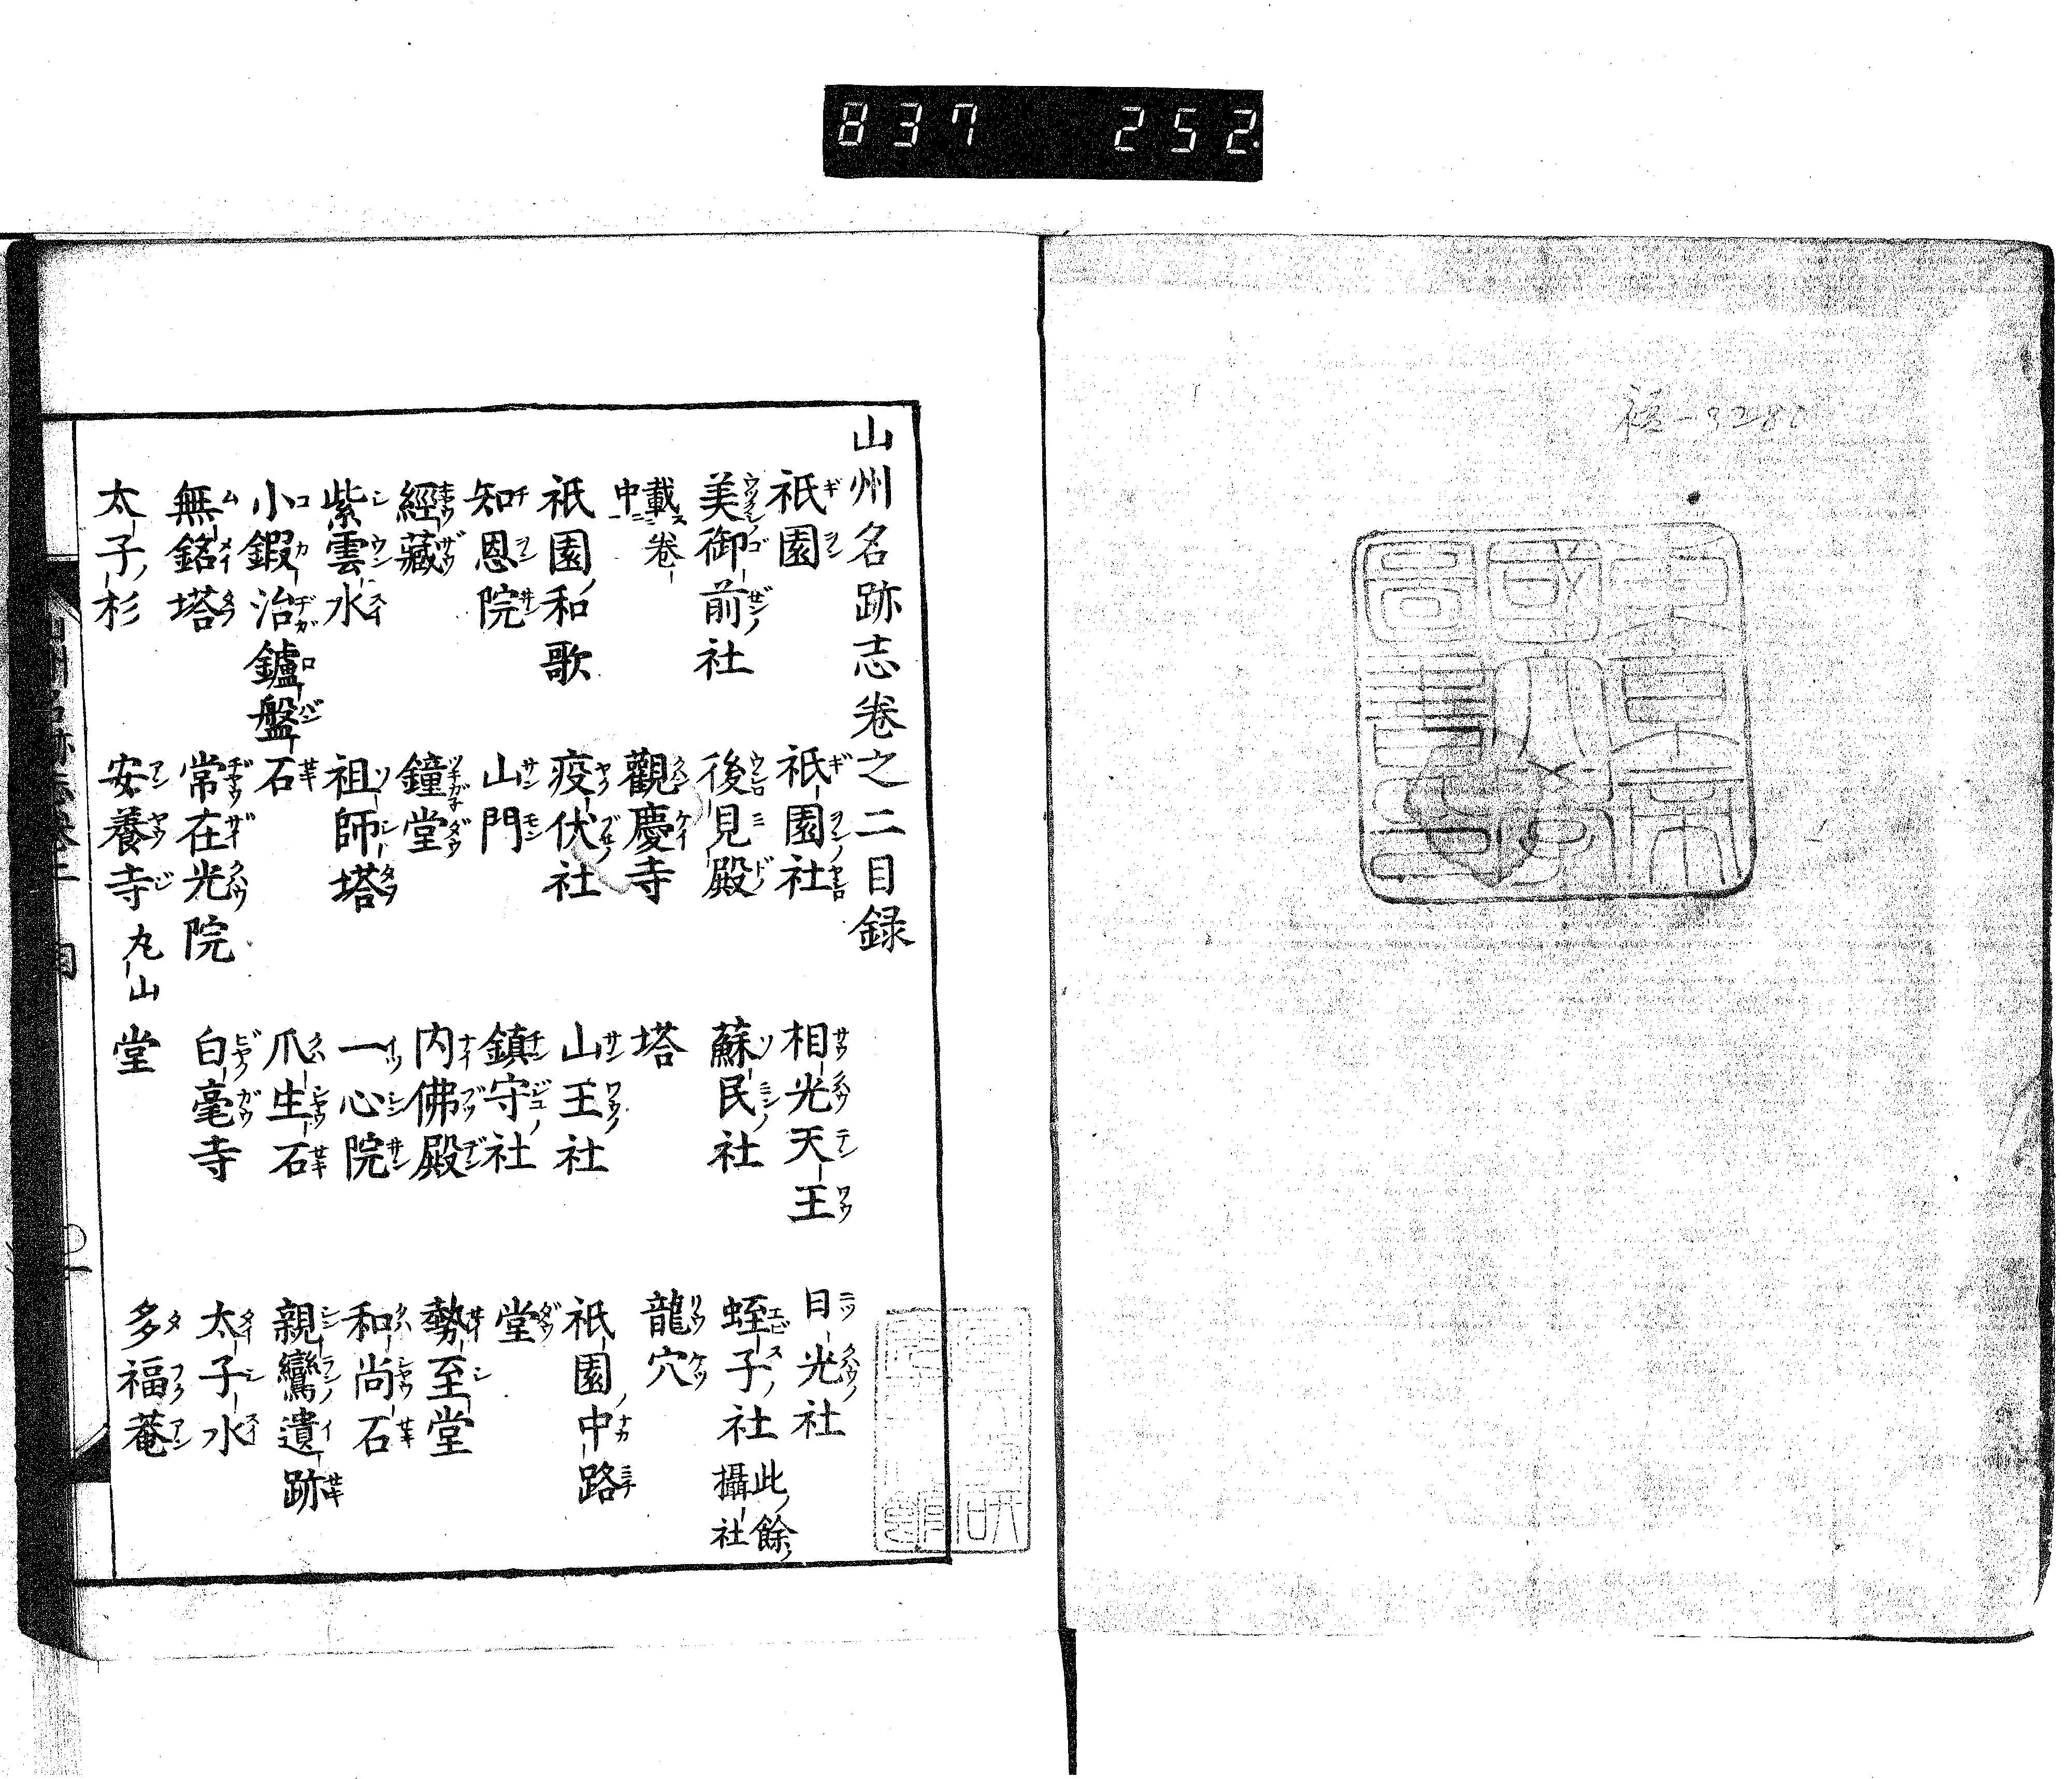 837 252
山州名跡志卷之二目録
祇園 祇園社 相光天王 日光社
美御前社 後見殿 蘇民社 蛭子社 此餘攝社
載卷中 觀慶寺 塔 龍穴
祇園和歌 疫伏社 山王社 祇園中路
知恩院 山門 鎮守社 堂
經藏 鐘堂 内佛殿 勢至堂
紫雲水 祖師塔 一心院 和尚石
小鍜治鑪盤石 爪生石 親鸞遺跡
無銘塔 常在光院 白毫寺 太子水
太子杉 安養寺 丸山 堂 多福菴